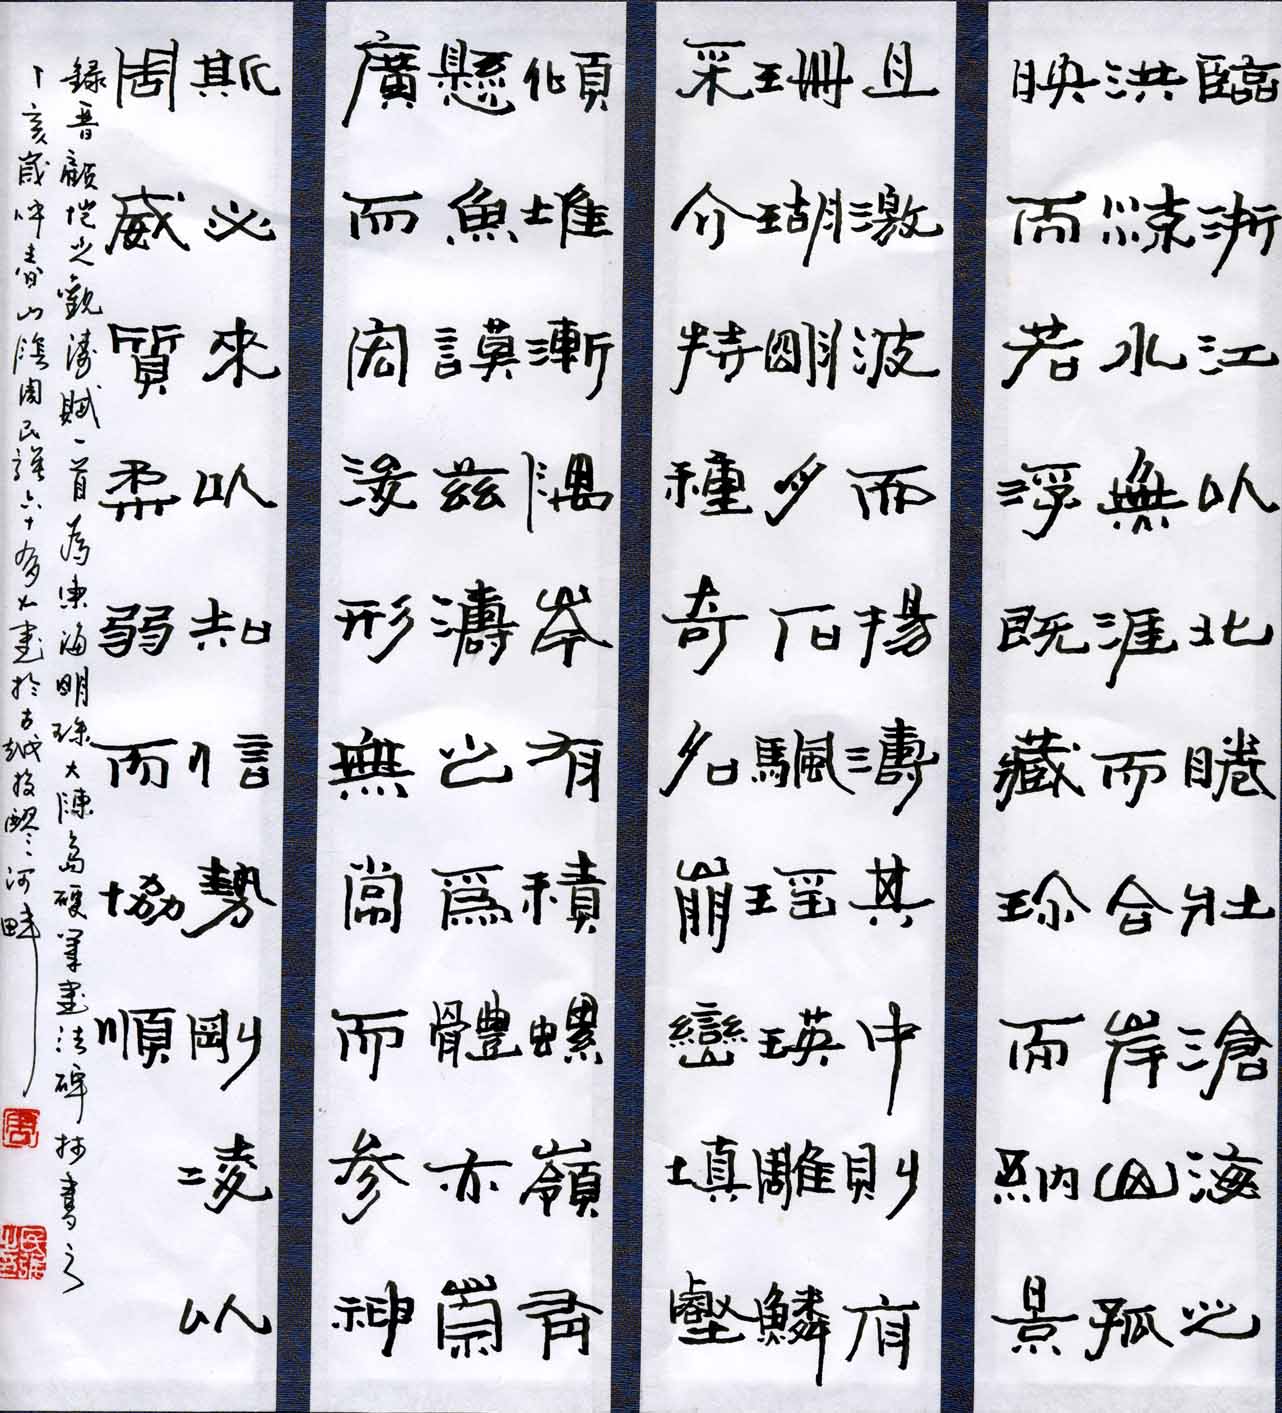 臨浙江以北睠壯滄海之
洪水無涯而合岸山孤
映而若浮既藏珍而納景
且激波而揚濤其中則有
珊瑚明月石颿瑤瑛雕鱗
采介特種奇名崩巒填壑
傾堆漸隅岑有積螺嶺有
懸魚謨茲濤之為體亦崇
廣而宏浚形無常而參神
斯必來以知信勢剛凌以
周威質柔弱而協順
錄晉顧愷之觀濤賦一首為東海明珠大陳島硬筆書法碑林書之
丁亥歲仲春山陰周民六十書於古越投醪河畔
周